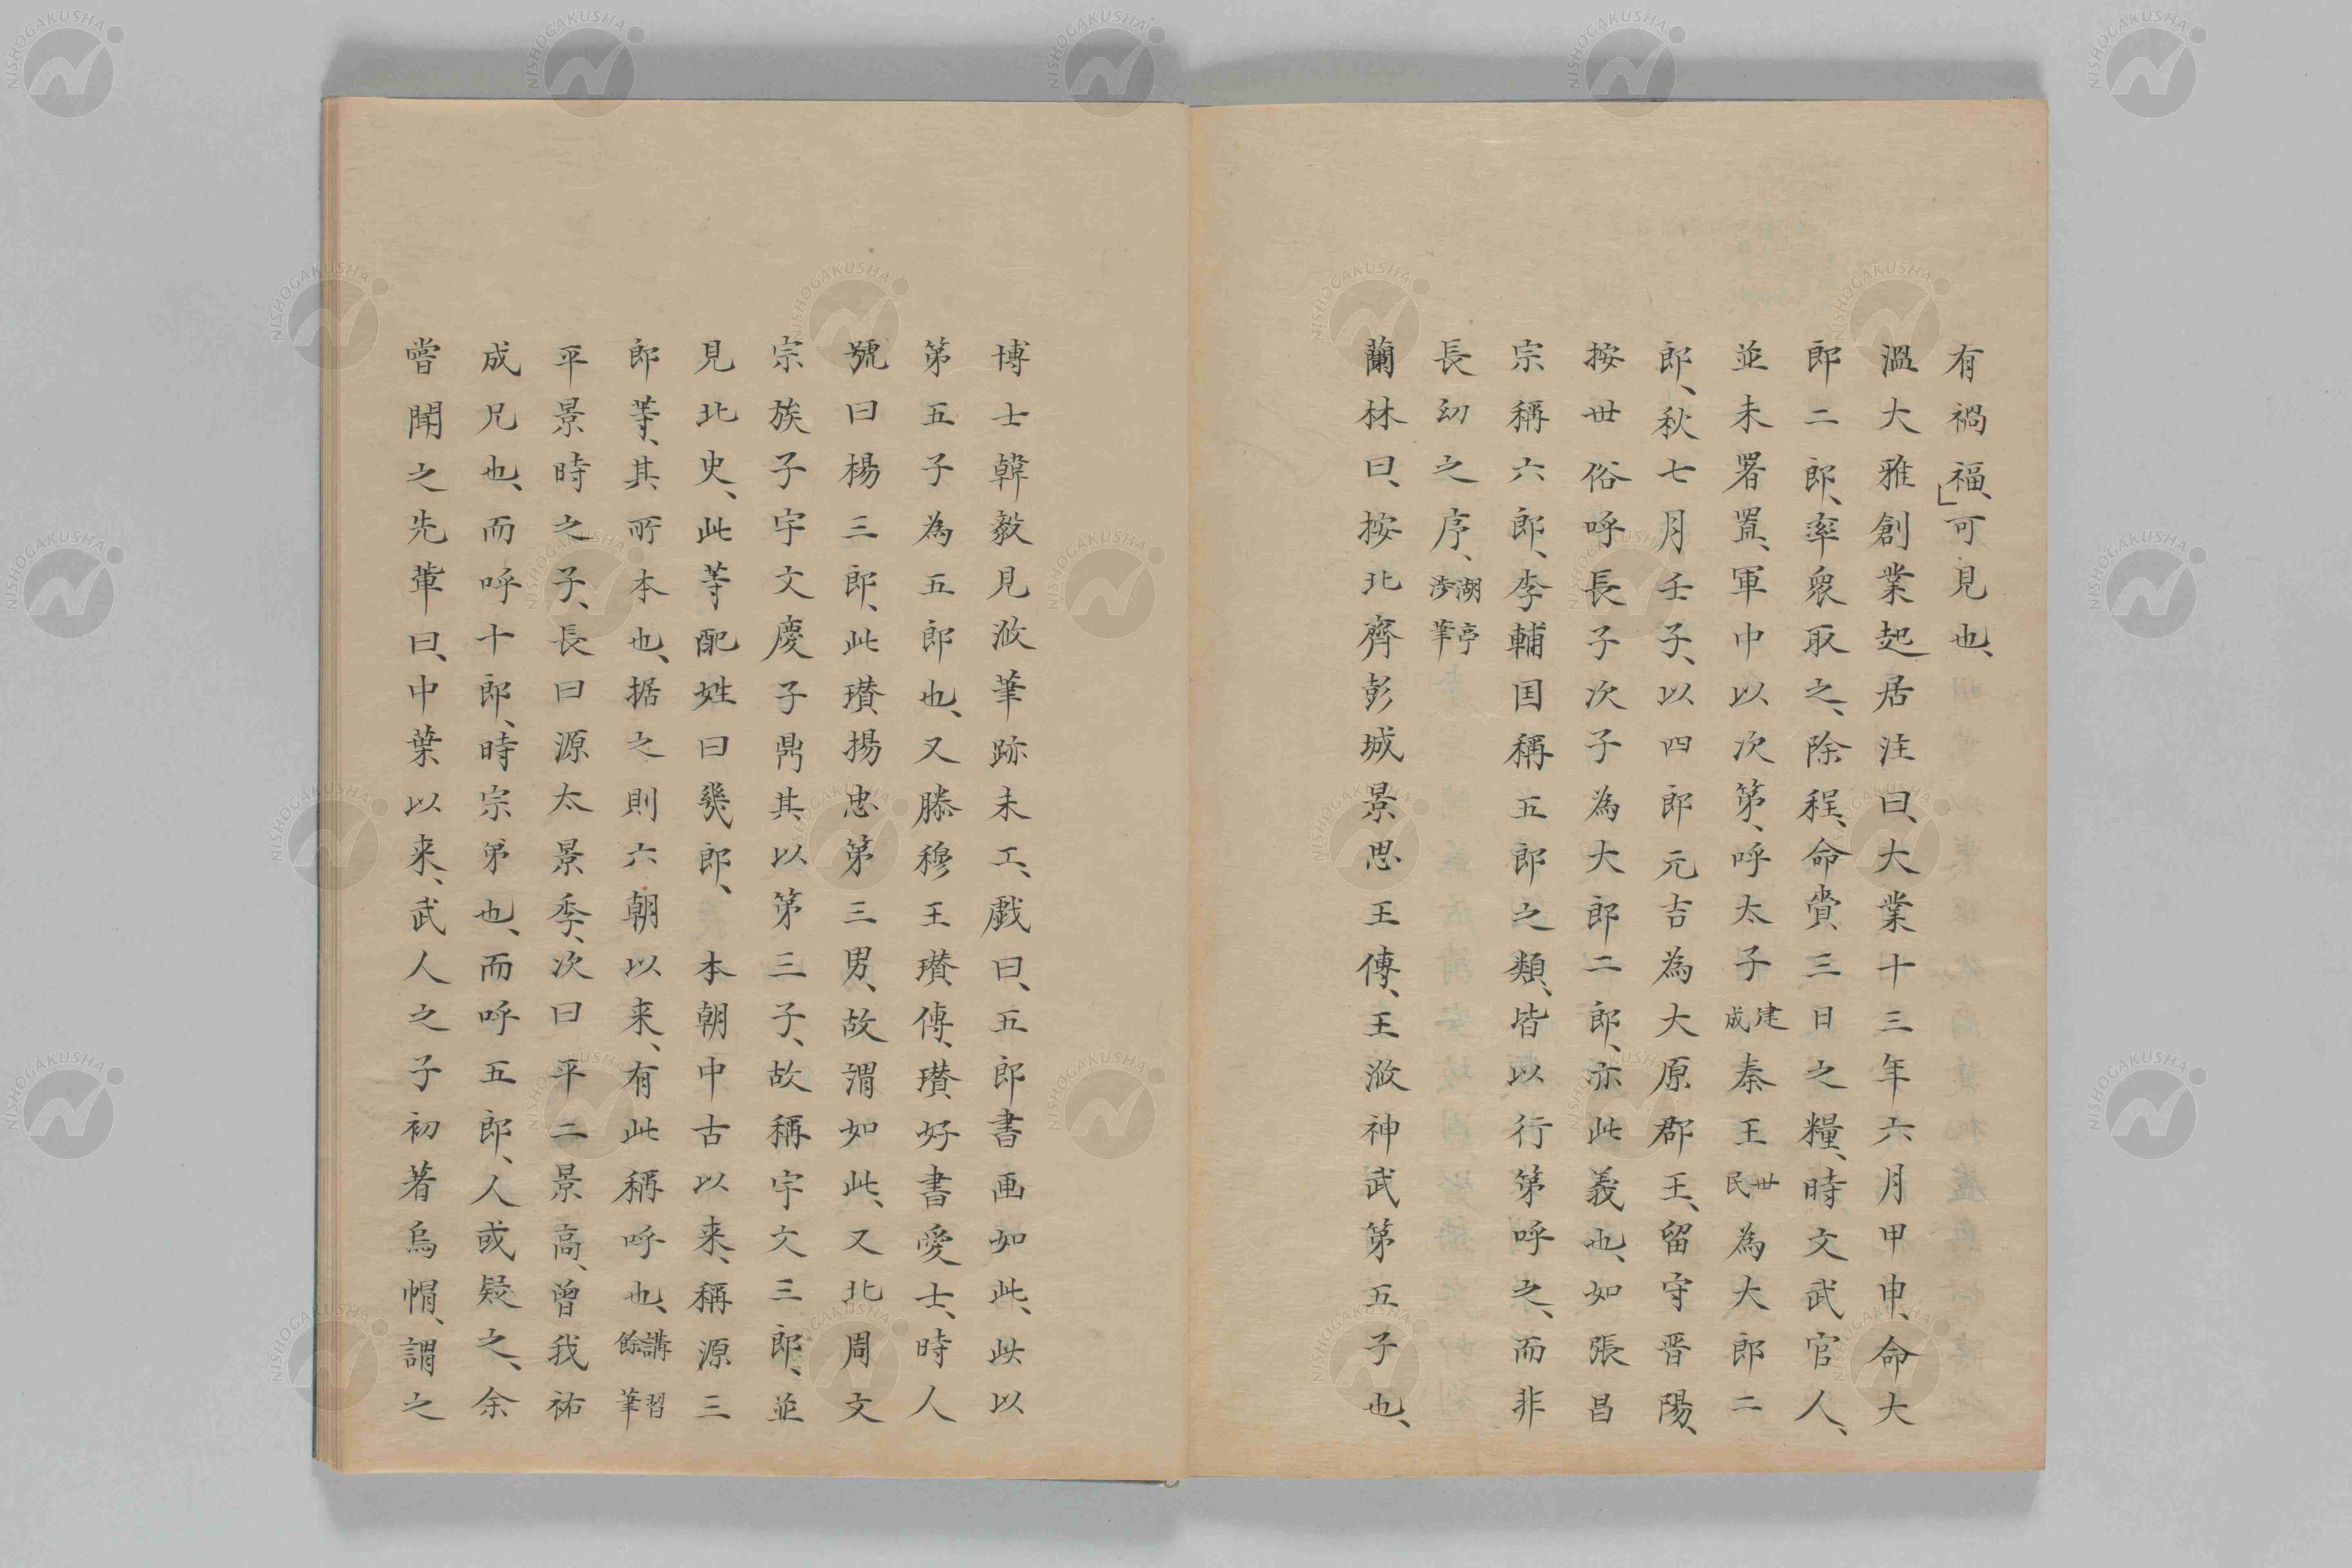 有禍福、」可見也、
溫大雅創業起居注曰、大業十三年六月甲申、命大
郎二郎、率衆取之、除程、命賫三日之糧、時文武官人、
並未署置、軍中以次第、呼太子建成秦王世民為大郎二
郎、秋七月壬子、以四郎元吉為大原郡王、留守晋陽、
按世俗呼長子次子為大郎二郎、亦此義也、如張昌
宗稱六郎、李輔国稱五郎之類、皆以行第呼之、而非
長幼之序、湖亭渉筆
蘭林曰、按北齊彭城景思王傳、王浟神武第五子也、
博士韓毅見浟筆跡未工、戯曰、五郎書画如此、此以
第五子為五郎也、又滕穆王瓚傳、瓚好書愛士、時人
號曰楊三郎、此瓚揚忠第三男、故謂如此、又北周文
宗族子宇文慶子㒵其以第三子、故稱宇文三郎、並
見北史、此等配姓曰幾郎、本朝中古以来、稱源三
郎等、其所本也、据之則六朝以来、有此稱呼也、講習餘筆
平景時之子、長曰源太景季、次曰平二景高、曾我祐
成兄也、而呼十郎、時宗弟也、而呼五郎、人或疑之、余
嘗聞之先輩曰、中葉以来、武人之子初著烏帽、謂之